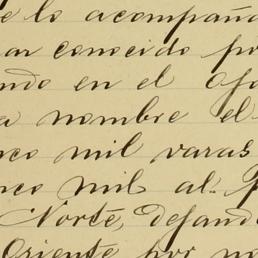 e lo acompaña
ar conocido po
ndo en el
a nombre el
nco mil varas
nco mil al
Norte, dejand
Oriente por